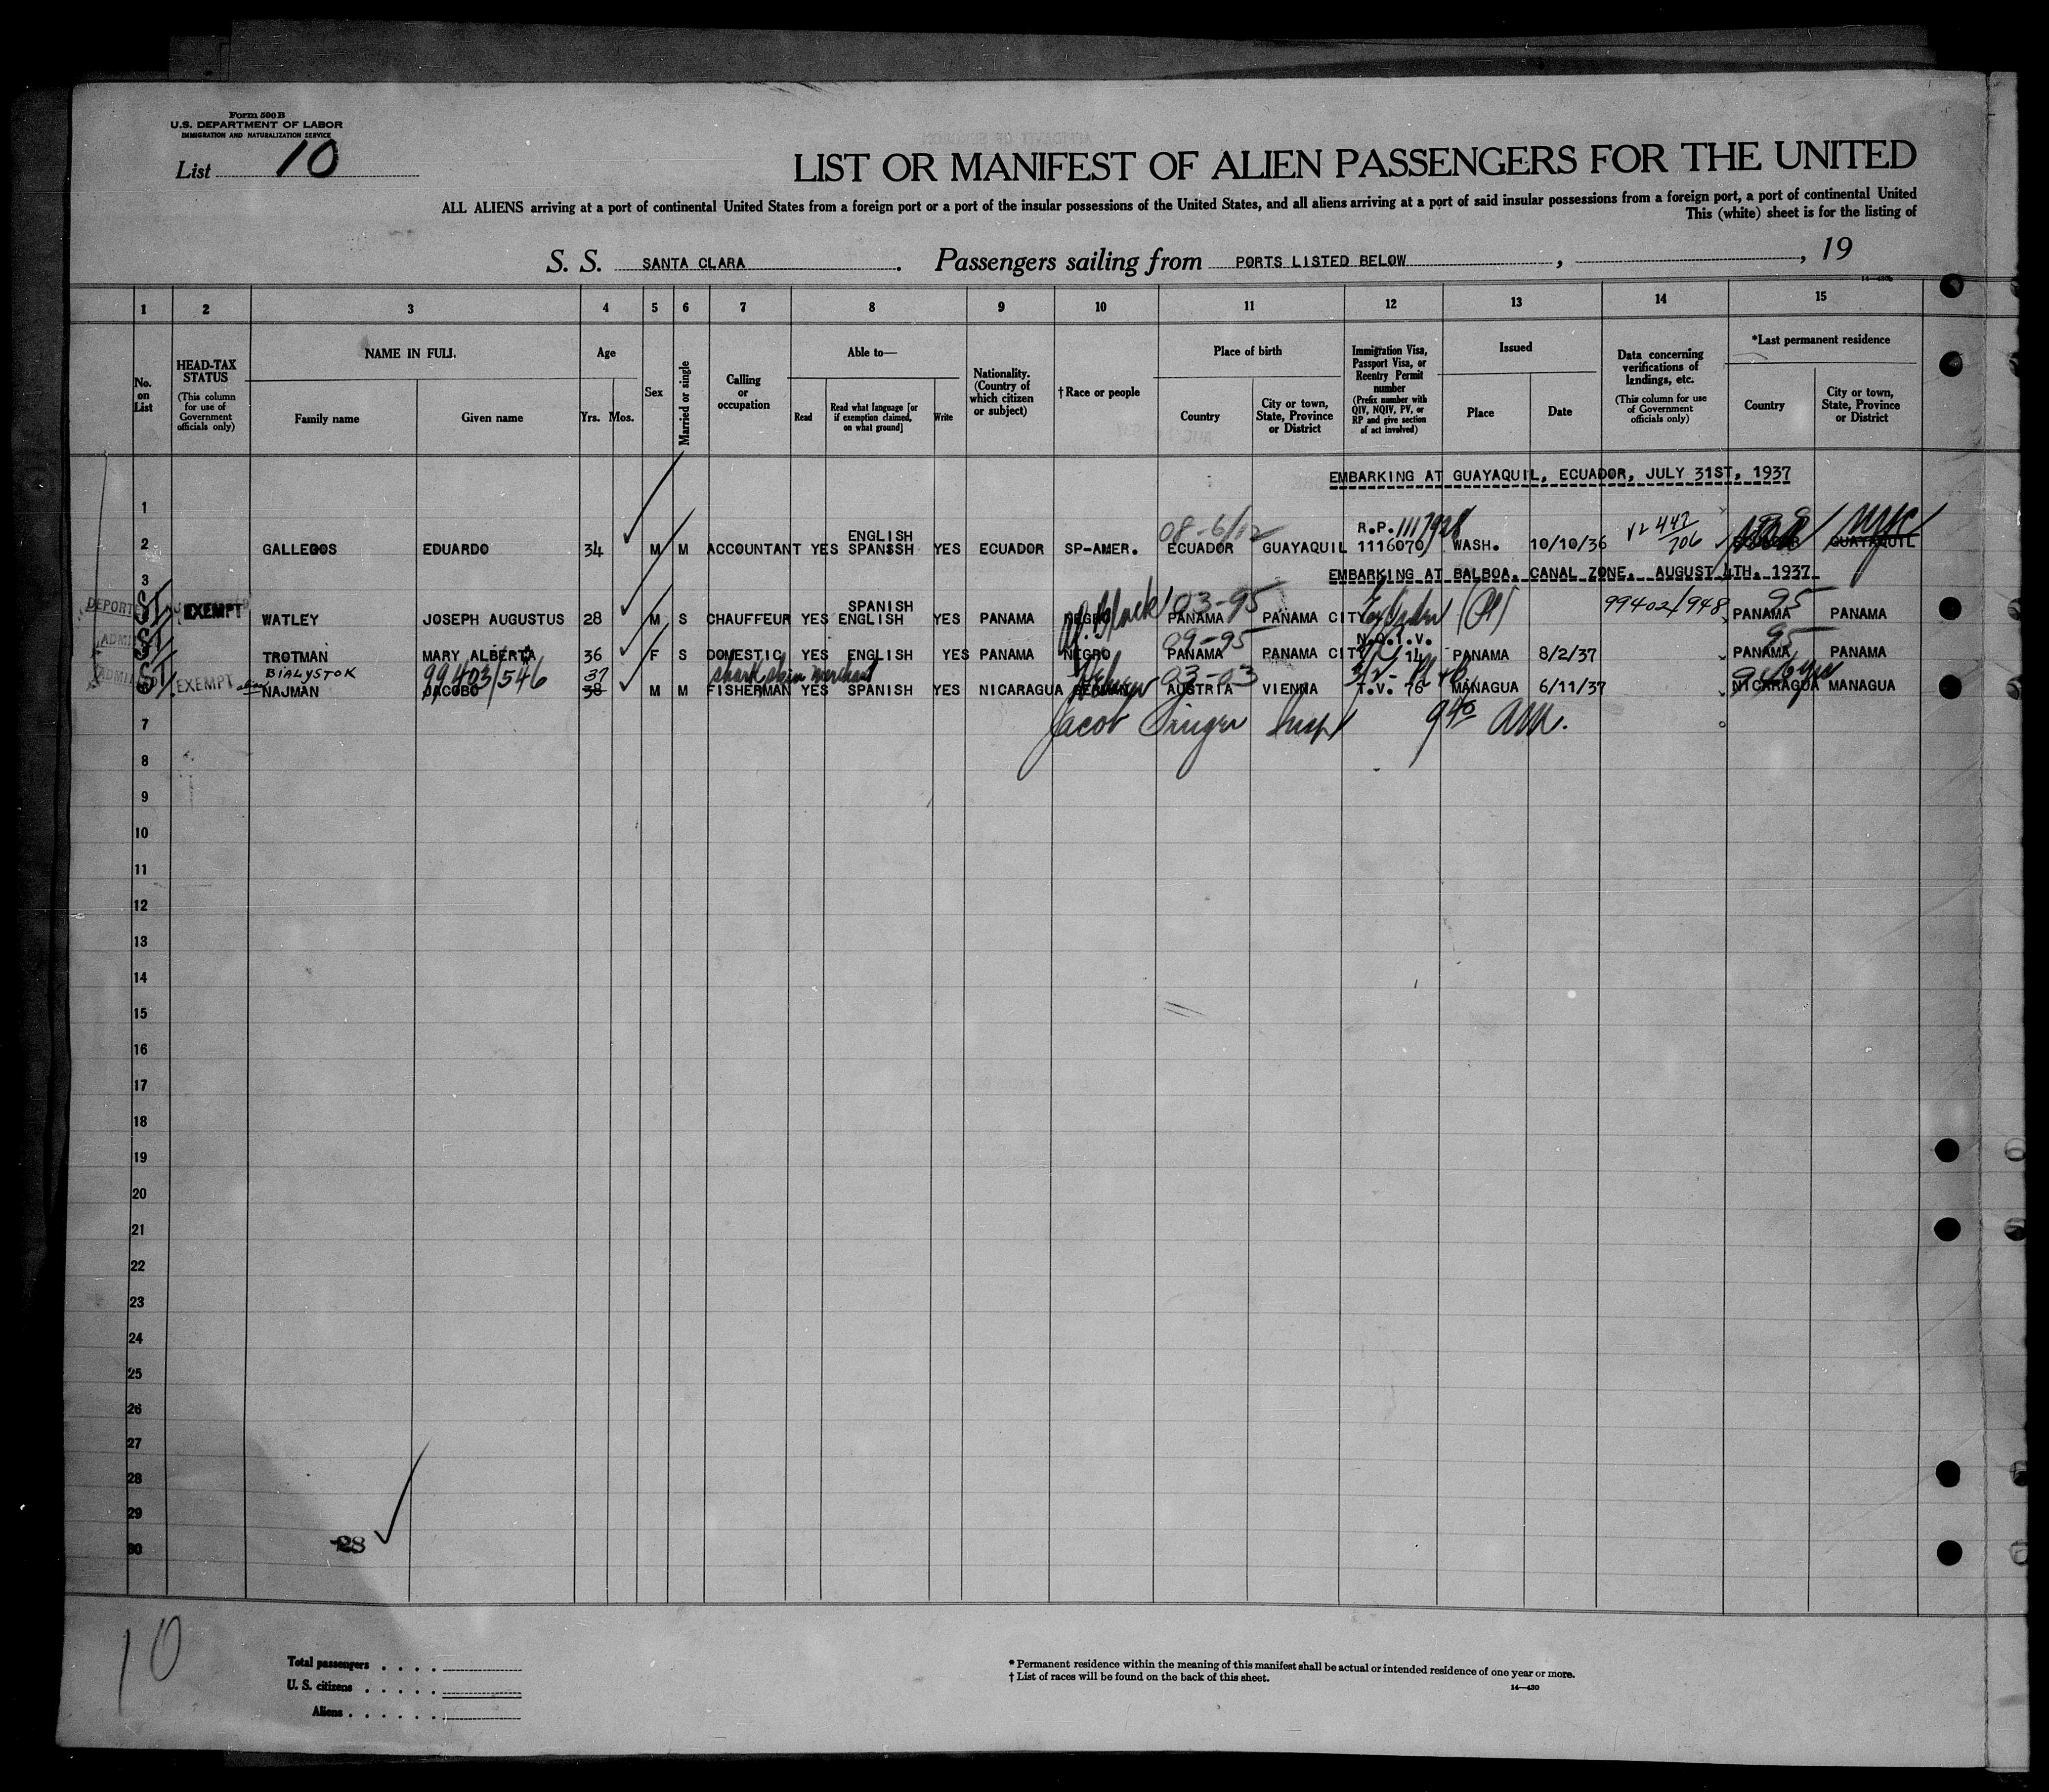 Form 500B
U.S. DEPARTMENT OF LABOR
IMMIGRATION AND NATURALIZATION SERVICE
List 10
LIST OR MANIFEST OF ALIEN PASSENGERS FOR THE UNITED
ALL ALIENS arriving at a port of continental United States from a foreign port or a port of the insular possessions of the United States, and all aliens arriving at a port of said insular possessions from a foreign port, a port of continental United
This (white) sheet is for the listing of
S. S. SANTA CLARA. Passengers sailing from PORTS LISTED BELOW, , 19
1 2 3 4 5 6 7 8 9 10 11 12 13 14 15
No. on List
HEAD-TAX STATUS (This column for use of Government officials only)
NAME IN FULL
Family name Given name
Age
Yrs. Mos.
Sex
Married or single
Calling or occupation
Able to—
Read Read what language [or if exemption claimed, on what ground] Write
Nationality. (Country of which citizen or subject)
†Race or people
Place of birth
Country City or town, State, Province or District
Immigration Visa, Passport Visa, or Reentry Permit number (Prefix number with QIV, NQIV, PV, or RP and give section of act involved)
Issued
Place Date
Data concerning verifications of landings, etc. (This column for use of Government officials only)
*Last permanent residence
Country City or town, State, Province or District
EMBARKING AT GUAYAQUIL, ECUADOR, JULY 31ST, 1937
1
ENGLISH 08-6/12 R.P. 1117928 442/706 NYC
2 GALLEGOS EDUARDO 34 M M ACCOUNTANT YES SPANSSH YES ECUADOR SP-AMER. ECUADOR GUAYAQUIL 1116070 WASH. 10/10/36 ECUADOR GUAYAQUIL
3 EMBARKING AT BALBOA, CANAL ZONE, AUGUST 4TH. 1937
ST EXEMPT SPANISH Black 03-95 99402/948 95
WATLEY JOSEPH AUGUSTUS 28 M S CHAUFFEUR YES ENGLISH YES PANAMA NEGRO PANAMA PANAMA CITY PANAMA PANAMA
ST 09-95 N.Q.I.V. 95
TROTMAN MARY ALBERTA 36 F S DOMESTIC YES ENGLISH YES PANAMA NEGRO PANAMA PANAMA CITY 14 PANAMA 8/2/37 PANAMA PANAMA
ST EXEMPT BIALYSTOK 99403/546 37 shark skin merchant Hebrew 03-03
NAJMAN JACOBO 38 M M FISHERMAN YES SPANISH YES NICARAGUA AUSTRIA VIENNA T.V. 76 MANAGUA 6/11/37 NICARAGUA MANAGUA
7 Jacob Singer Insp 9 40 AM.
8
9
10
11
12
13
14
15
16
17
18
19
20
21
22
23
24
25
26
27
28
29
30
10
Total passengers . . . .
U. S. citizens . . . . .
Aliens . . . . . .
* Permanent residence within the meaning of this manifest shall be actual or intended residence of one year or more.
† List of races will be found on the back of this sheet.
14—430